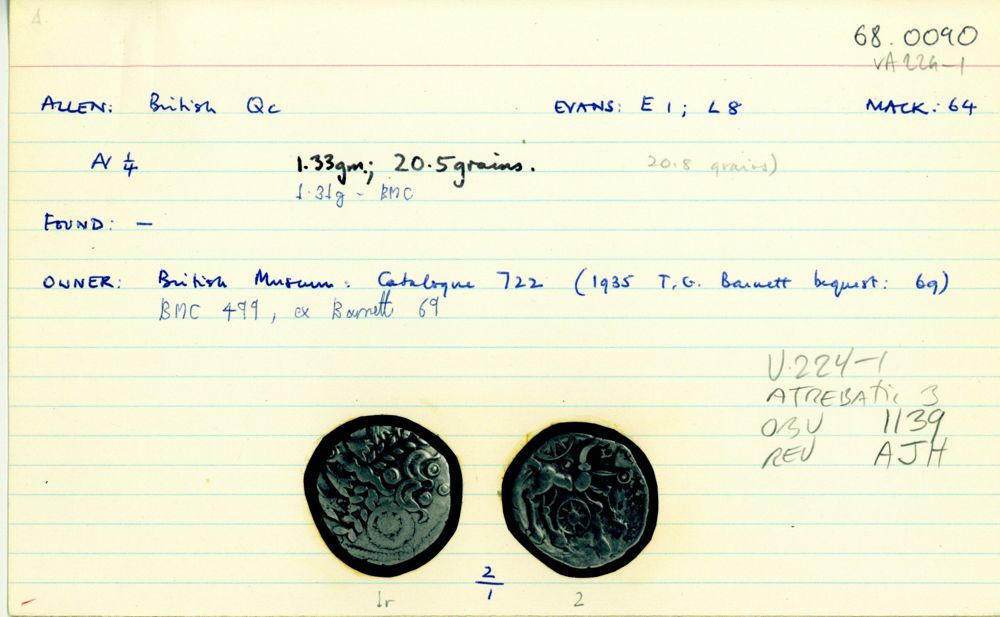 68.0090
VA 224-1
ALLEN: British Qc EVANS: E 1; L 8 MACK: 64
AV 1/4 1.33gm; 20.5 grains. 20.8 grains)
1.31g - BMC
FOUND: —
OWNER: British Museum: Catalogue 722 (1935 T.G. Barnett bequest: 69)
BMC 499, ex Barnett 69
V.224-1
ATREBATIC 3
OBV 1139
REV AJH
2/1
1r 2